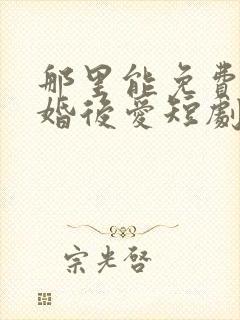 那里能免費
婚後愛短劇
宗光啓